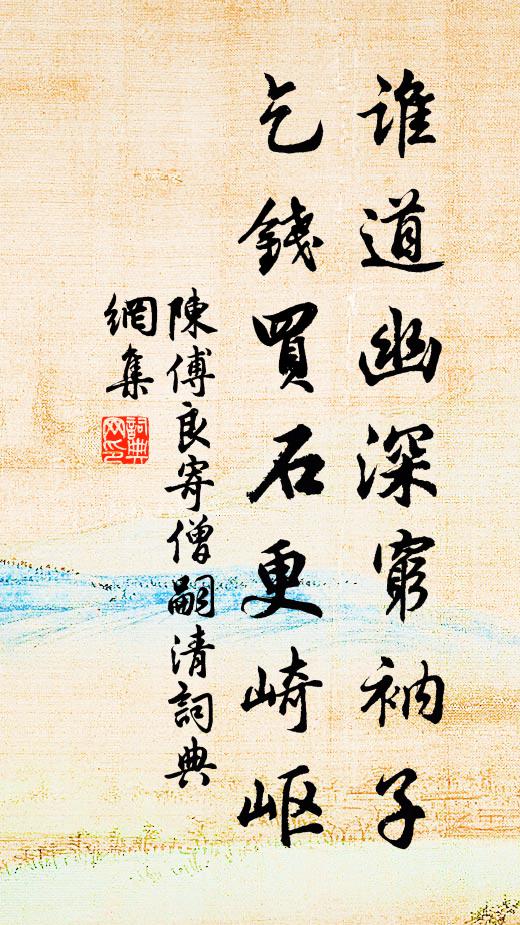 誰道幽深窮衲子
乞錢買石更崎嶇
陳傅良寄僧嗣清詞典
網集
詞典
网印